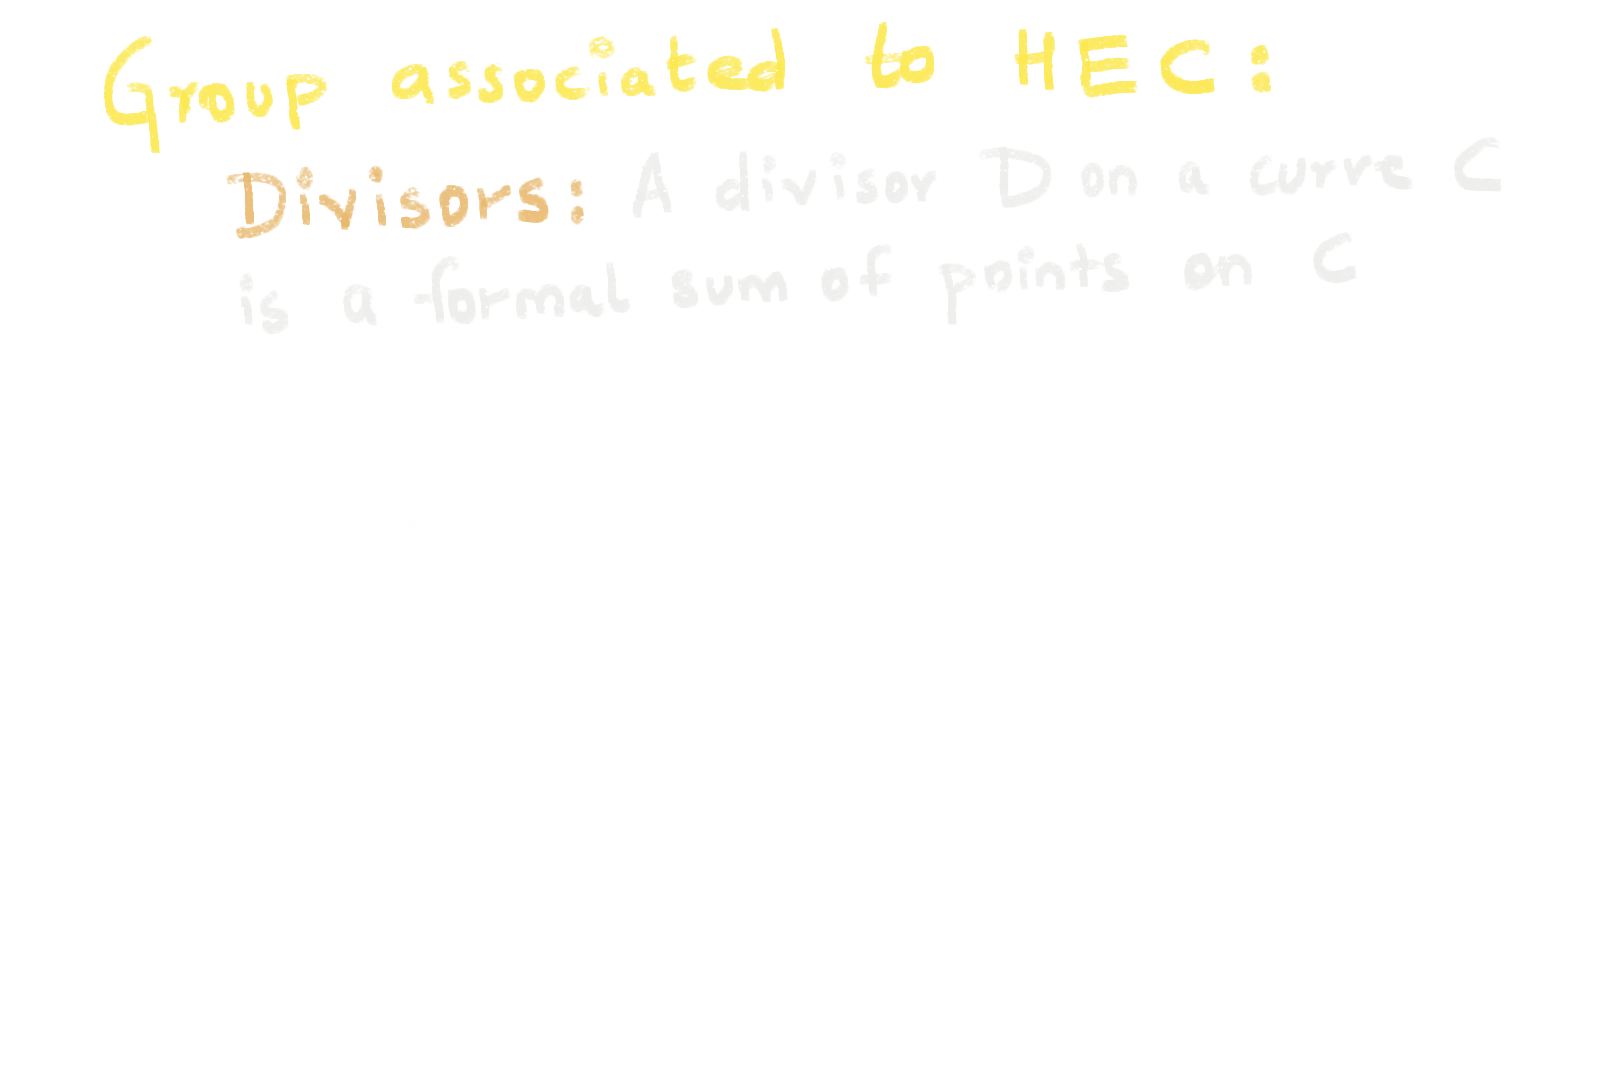 Group associated to HEC:
Divisors: A divisor D on a curve C
is a formal sum of points on C